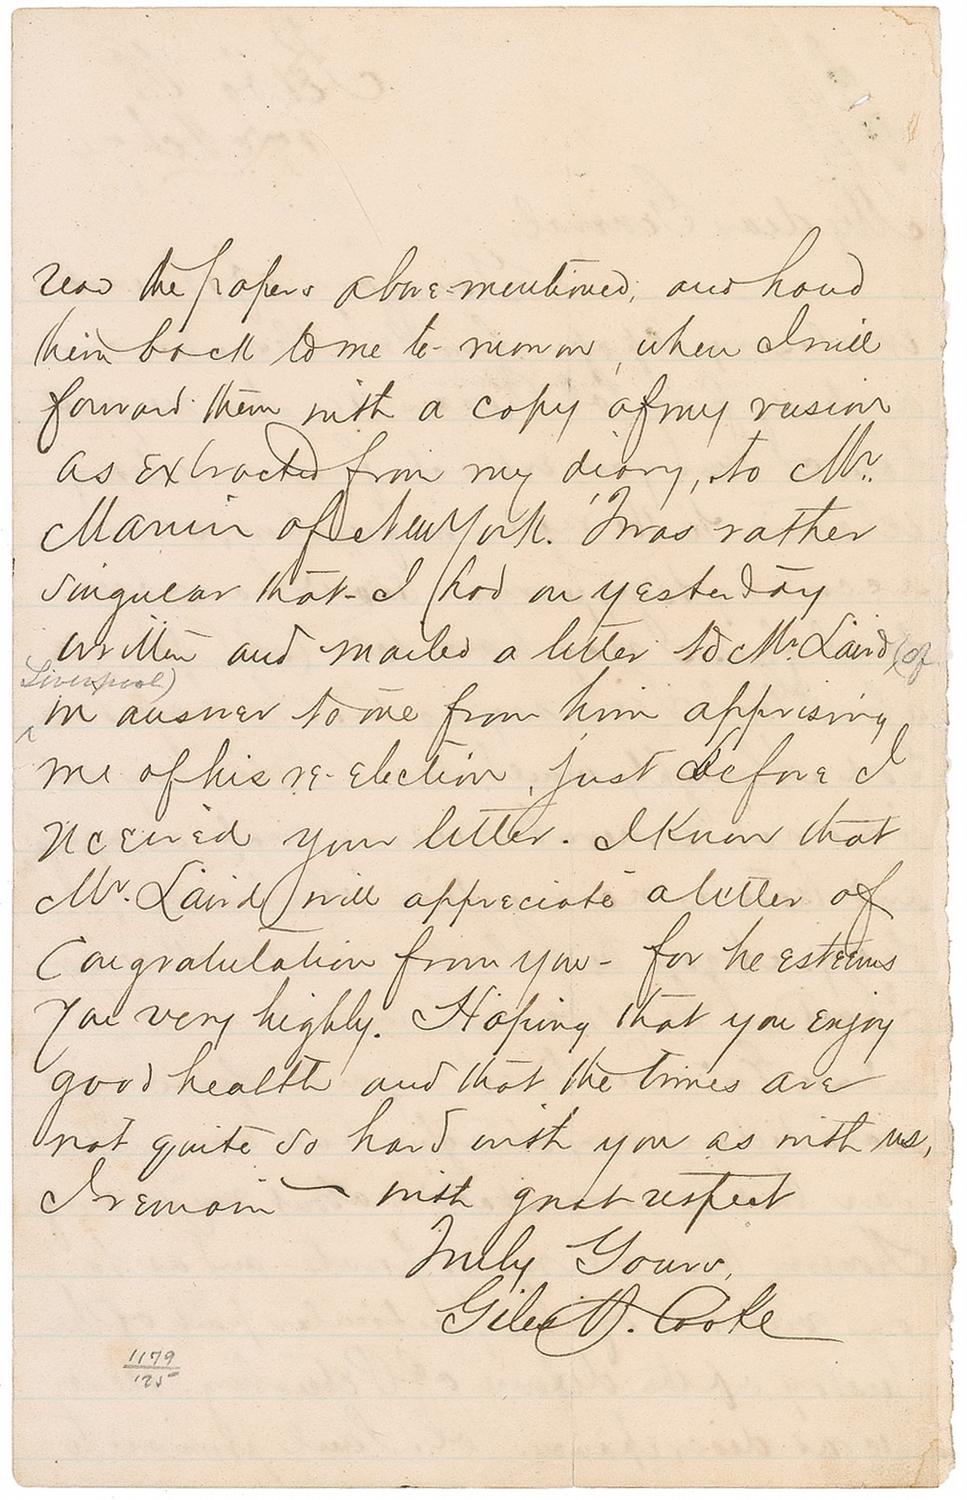 read the papers above-mentioned, and hand
them back to me to-morrow, when I will
forward them with a copy of my version
as extracted from my diary, to Mr.
of New York. 'Twas rather
singular that I had on yesterday
written and mailed a letter to Mr. Laird (of
Liverpool)
in answer to one from him apprising
me of his re-election, just before I
received your letter. I know that
Mr. Laird will appreciate a letter of
Congratulation from you - for he esteems
you very highly. Hoping that you enjoy
good health and that the times are
not quite so hard with you as with us,
I remain — with great respect
Truly Yours,
Giles B. Cooke
1179
125